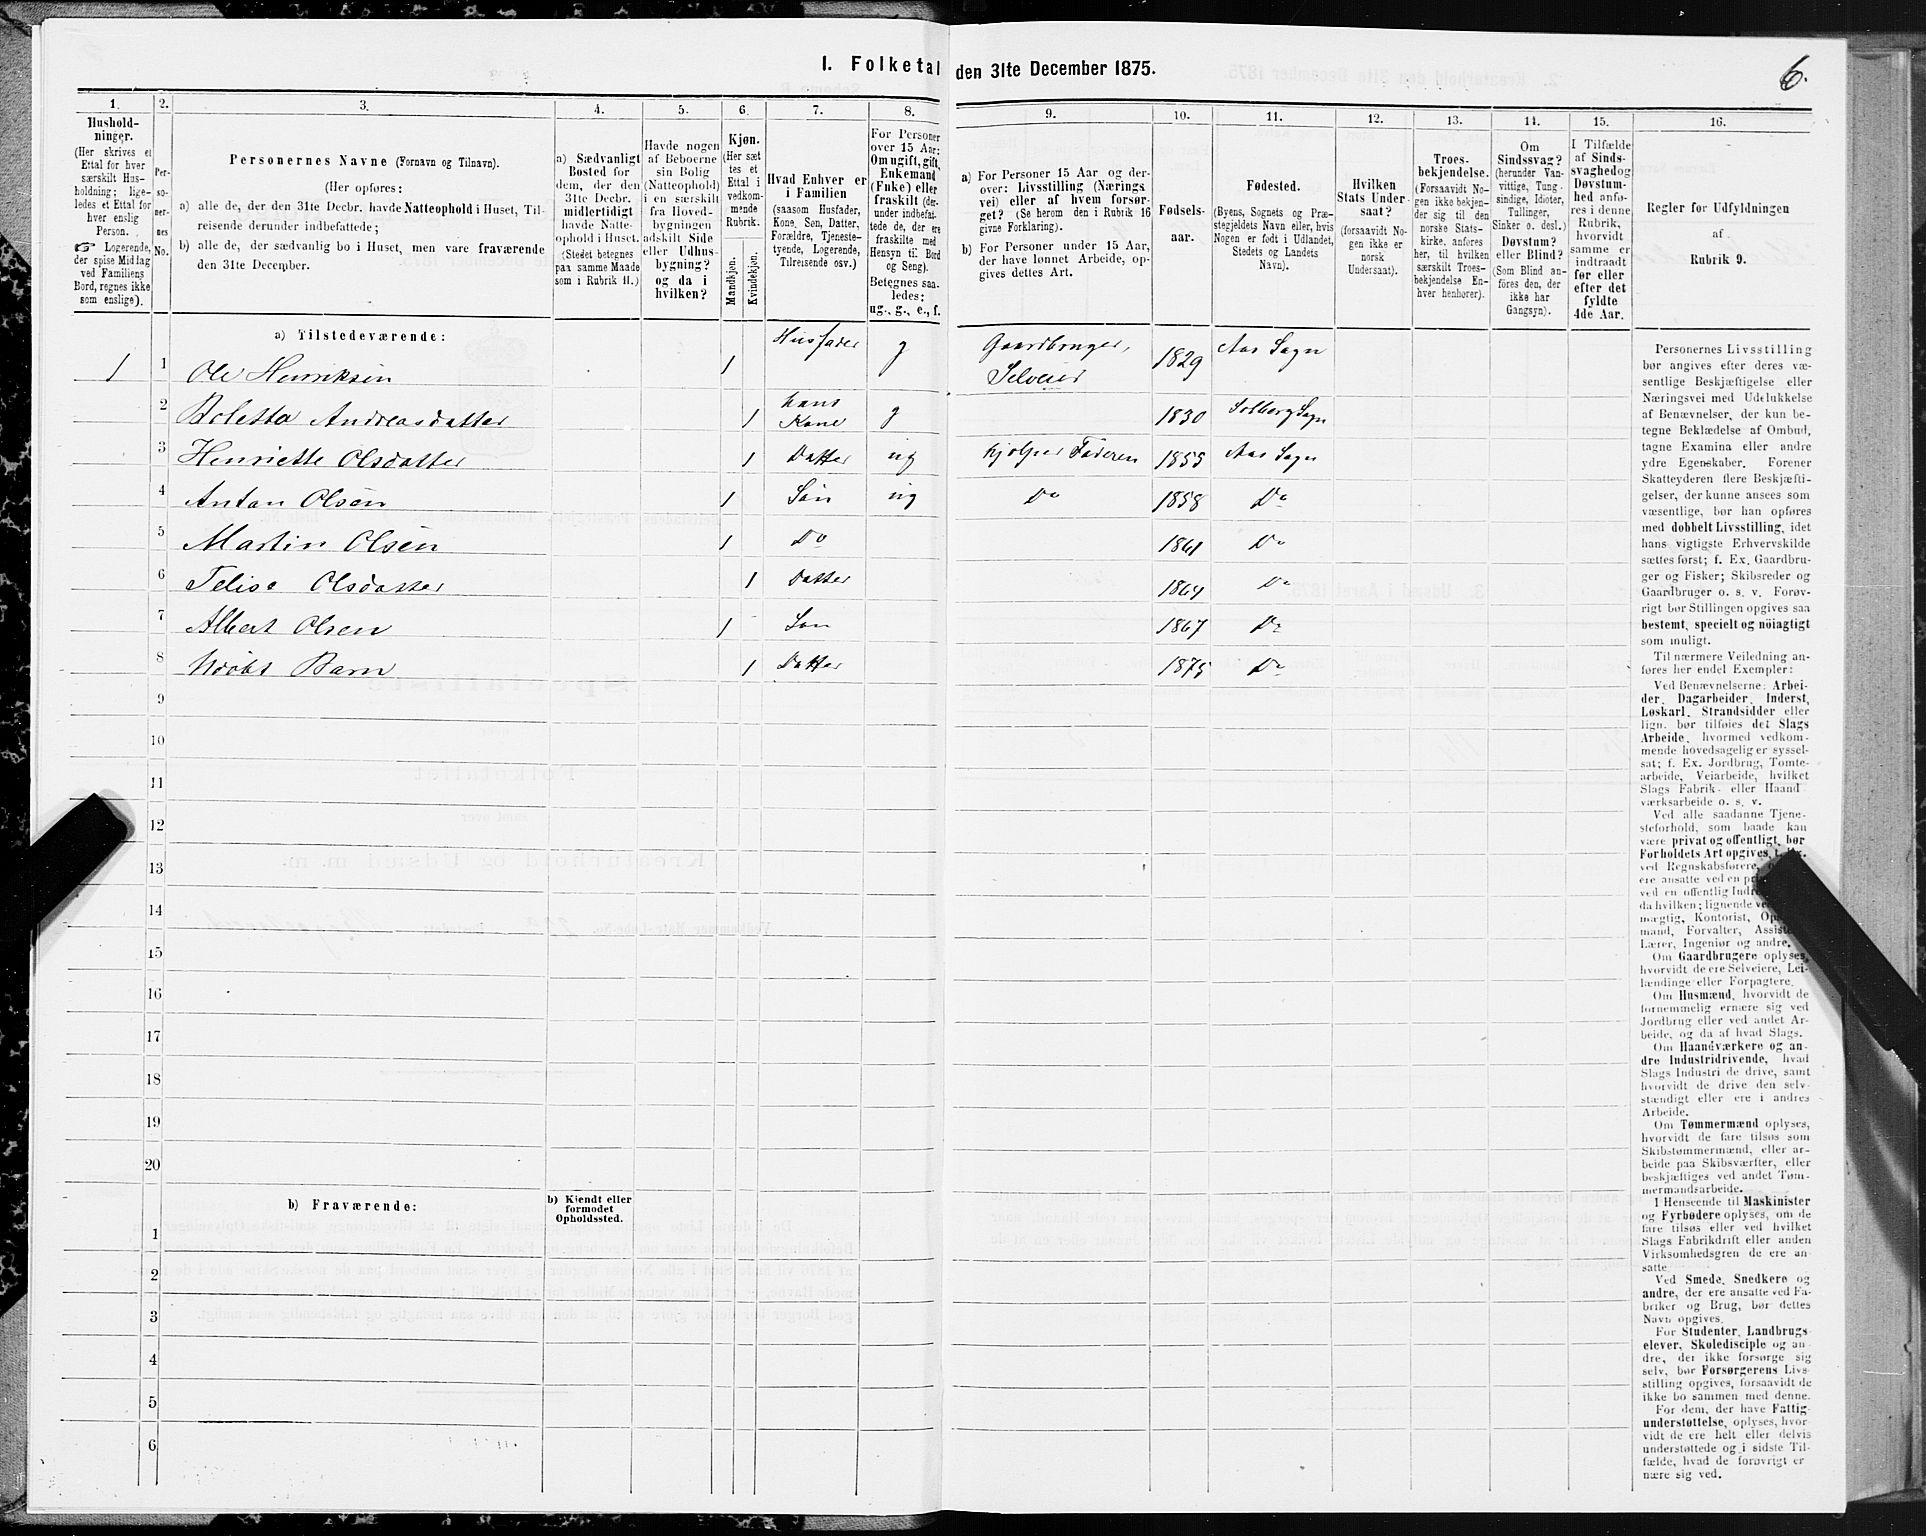 I. Folketal den 31te December 1875.
6.
1. 2. 3. 4. 5. 6. 7. 8. 9. 10. 11. 12. 13. 14. 15. 16.
Hushold-
ninger.
(Her skrives et
Ettal for hver
særskilt Hus-
holdning; lige-
ledes et Ettal for
hver enslig
Person.
☞ Logerende,
der spise Middag
ved Familiens
Bord, regnes ikke
som enslige).
Per-
so-
ner-
nes
No.
Personernes Navne (Fornavn og Tilnavn).
(Her opføres:
a) alle de, der den 31te Decbr. havde Natteophold i Huset, Til-
reisende derunder indbefattede;
b) alle de, der sædvanlig bo i Huset, men vare fraværende
den 31te December.
a) Sædvanligt
Bosted for
dem, der den
31te Decbr.
midlertidigt
havde Natte-
ophold i Huset.
(Stedet betegnes
paa samme Maade
som i Rubrik 11.)
Havde nogen
af Beboerne
sin Bolig
(Natteophold)
i en særskilt
fra Hoved-
bygningen
adskilt Side
eller Udhus-
bygning?
og da i
hvilken?
Kjøn.
(Her sæt
tes et
Ettal i
vedkom-
mende
Rubrik.
Mandkjøn.
Kvindekjøn.
Hvad Enhver er
i Familien
(saasom Husfader,
Kone, Søn, Datter,
Forældre, Tjeneste-
tyende, Logerende,
Tilreisende osv.)
For Personer
over 15 Aar:
Om ugift, gift,
Enkemand
(Enke) eller
fraskilt (der-
under indbefat-
tede de, der ere
fraskilte med
Hensyn til Bord
og Seng).
Betegnes saa-
ledes:
ug., g., e., f.
a) For Personer 15 Aar og der-
over: Livsstilling (Nærings
vei) eller af hvem forsør-
get? (Se herom den i Rubrik 16
givne Forklaring).
b) For Personer under 15 Aar,
der have lønnet Arbeide, op-
gives dettes Art.
Fødsels-
aar.
Fødested.
(Byens, Sognets og Præ-
stegjeldets Navn eller, hvis
Nogen er født i Udlandet,
Stedets og Landets
Navn).
Hvilken
Stats Under-
saat?
(forsaavidt No-
gen ikke er
norsk
Undersaat).
Troes-
bekjendelse.
(Forsaavidt No-
gen ikke bekjen-
der sig til den
norske Stats-
kirke, anføres
her, til hvilken
særskilt Troes-
bekjendelse En-
hver henhører).
Om
Sindssvag?
(herunder Van-
vittige, Tung-
sindige, Idioter,
Tullinger,
Sinker o. desl.)
Døvstum?
eller Blind?
(Som Blind an-
føres den, der
ikke har
Gangsyn).
I Tilfælde
af Sinds-
svaghed og
Døvstum-
hed anfø-
res i denne
Rubrik,
hvorvidt
samme er
indtraadt
før eller
efter det
fyldte
4de Aar.
Regler før Udfyldningen
af
Rubrik 9.
a) Tilstedeværende:
1 1 Ole Henriksen 1 Husfader g Gaardbruger, Selveier 1829 Aas Sogn
2 Boletta Andreasdatter 1 hans Kone g 1830 Solberg Sogn
3 Henriette Olsdatter 1 Datter ug hjælper Faderen 1855 Aas Sogn
4 Anton Olsen 1 Søn ug Do 1858 Do
5 Martin Olsen 1 Do 1861 Do
6 Telise Olsdatter 1 Datter 1864 Do
7 Albert Olsen 1 Søn 1867 Do
8 Udøbt Barn 1 Datter 1875 Do
9
10
11
12
13
14
15
16
17
18
19
20
b) Fraværende:
b) Kjendt eller
formodet
Opholdssted.
1
2
3
4
5
6
Personernes Livsstilling
bør angives efter deres væ-
sentlige Beskjæftigelse eller
Næringsvei med Udelukkelse
af Benævnelser, der kun be-
tegne Beklædelse af Ombud,
tagne Examina eller andre
ydre Egenskaber. Forener
Skatteyderen flere Beskjæfti-
gelser, der kunne ansees som
væsentlige, bør han opføres
med dobbelt Livsstilling, idet
hans vigtigste Erhvervskilde
sættes først; f. Ex. Gaardbru-
ger og Fisker; Skibsreder og
Gaardbruger o. s. v. Forøv-
rigt bør Stillingen opgives saa
bestemt, specielt og nöiagtigt
som muligt.
Til nærmere Veiledning an-
føres her endel Exempler:
Ved Benævnelserne: Arbei-
der, Dagarbeider, Inderst,
Løskarl, Strandsidder eller
lign. bør tilføies det Slags
Arbeide, hvormed vedkom-
mende hovedsagelig er syssel-
sat; f. Ex. Jordbrug, Tomte-
arbeide, Veiarbeide, hvilket
Slags Fabrik- eller Haand
værksarbeide o. s. v.
Ved alle saadanne Tjene-
steforhold, som baade kan
være privat og offentligt, bør
Forholdets Art opgives,
ved Regnskabsførere,
ere ansatte ved en
ved en offentlig
da hvilken; lignende
mægtig, Kontorist,
mand, Forvalter,
Lærer, Ingeniør og andre.
Om Gaardbrugere oplyses,
hvorvidt de ere Selveiere, Lei-
lændinge eller Forpagtere.
Om Husmænd, hvorvidt de
fornemmelig ernære sig ved
Jordbrug eller ved andet Ar-
beide, og da af hvad Slags.
Om Haandværkere og an-
dre Industridrivende, hvad
Slags Industri de drive, samt
hvorvidt de drive den selv-
stændigt eller ere i andres
Arbeide.
Om Tømmermænd oplyses,
hvorvidt de fare tilsøs som
Skibstømmermænd, eller ar-
beide paa Skibsværfter, eller
beskjæftiges ved andet Tøm-
mermandsarbeide.
I Henseende til Maskinister
og Fyrbødere oplyses, om de
fare tilsøs eller ved hvilket
Slags Fabrikdrift eller anden
Virksomhedsgren de ere an-
satte.
Ved Smede, Snedkere og
andre, der ere ansatte ved Fa-
briker og Brug, bør dettes
Navn opgives.
For Studenter, Landbrugs
elever, Skoledisciple og an-
dre, der ikke forsørge sig
selv, bør Forsørgerens Livs-
stilling opgives, forsaavidt de
ikke bo sammen med denne.
For dem, der have Fattig
understøttelse, oplyses, hvor-
vidt de ere helt eller delvis
understøttede og i sidste Til-
fælde, hvad de forøvrigt er
nære sig ved.